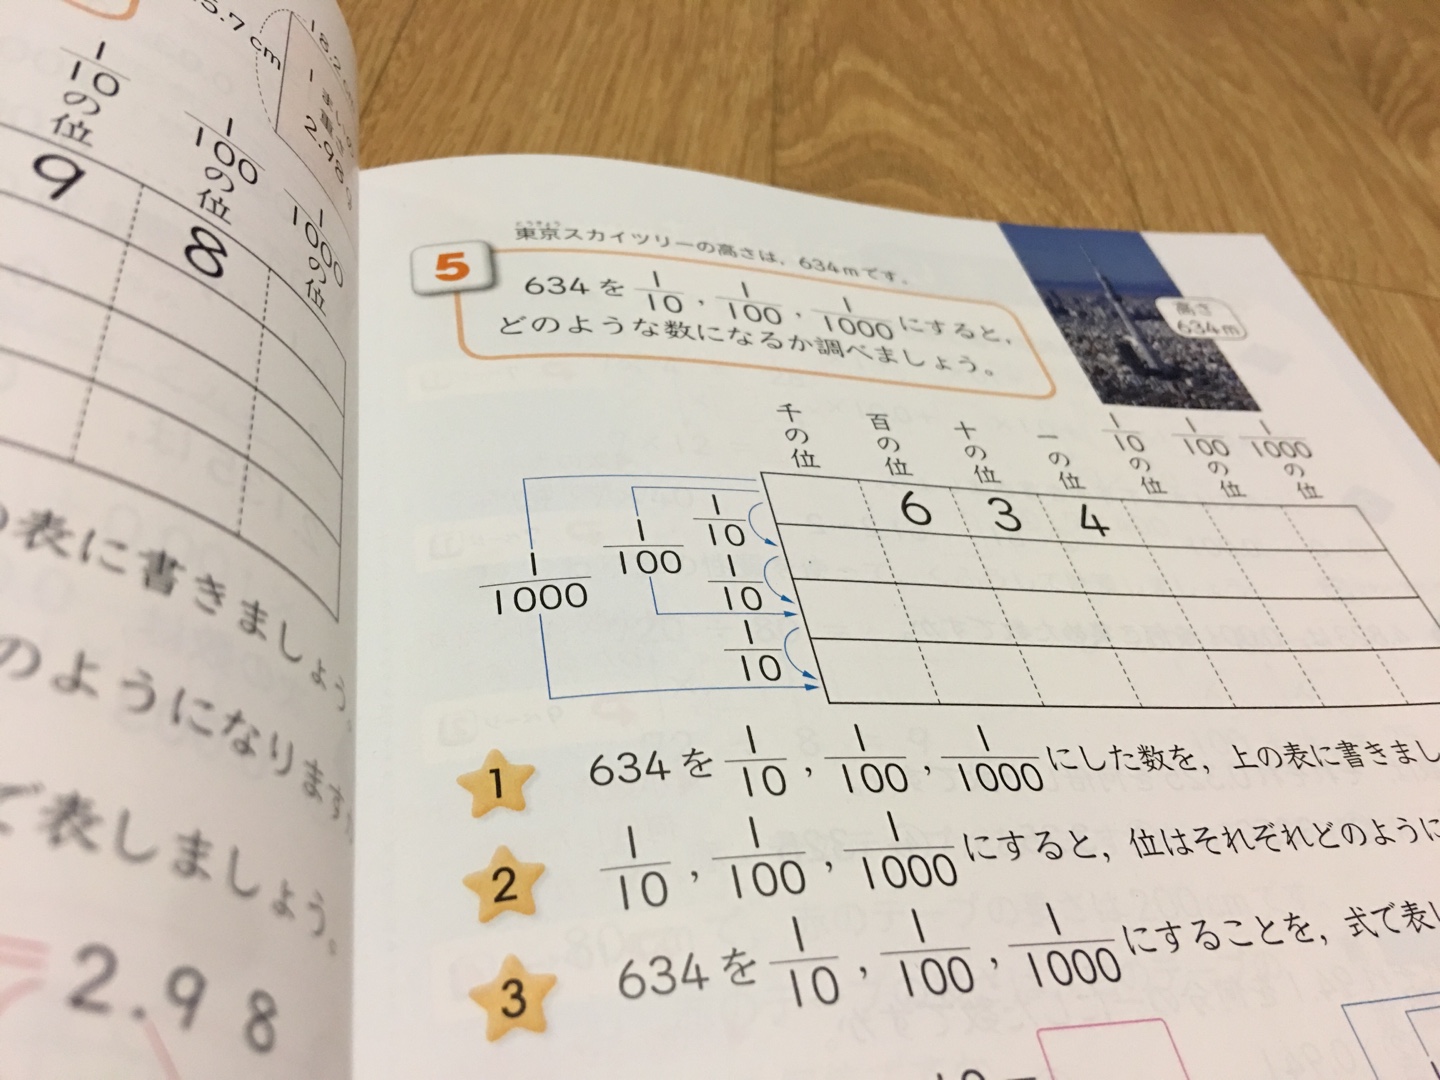 5.7 cm
18.2
1
2.98
1/10の位
1/100の位
1/1000の位
9 8
表に書きましょう。
のようになります
で表しましょう。
2.98
5
とうきょう
東京スカイツリーの高さは，634mです。
634を 1/10，1/100，1/1000 にすると，
どのような数になるか調べましょう。
高さ
634m
千の位 百の位 十の位 一の位 1/10の位 1/100の位 1/1000の位
6 3 4
1/10
1/100
1/10
1/1000
1/10
1 634を 1/10，1/100，1/1000 にした数を，上の表に書きまし
2 1/10，1/100，1/1000 にすると，位はそれぞれどのように
3 634を 1/10，1/100，1/1000 にすることを，式で表し